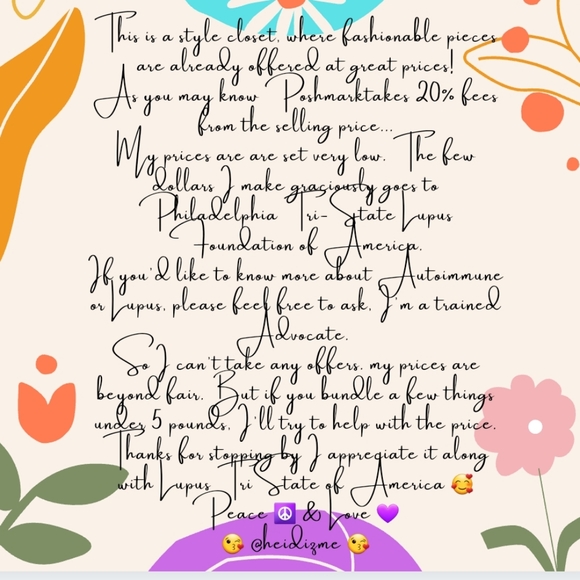 This is a style closet, where fashionable pieces
are already offered at great prices!
As you may know Poshmarktakes 20% fees
from the selling price...
My prices are are set very low. The few
dollars I make graciously goes to
Philadelphia Tri-State Lupus
Foundation of America.
If you'd like to know more about Autoimmune
or Lupus, please feel free to ask, I'm a trained
Advocate.
So I can't take any offers, my prices are
beyond fair. But if you bundle a few things
under 5 pounds, I'll try to help with the price.
Thanks for stopping by I appreciate it along
with Lupus Tri State of America 🥰
Peace ☮️ & Love 💜
😘 @heidizme 😘